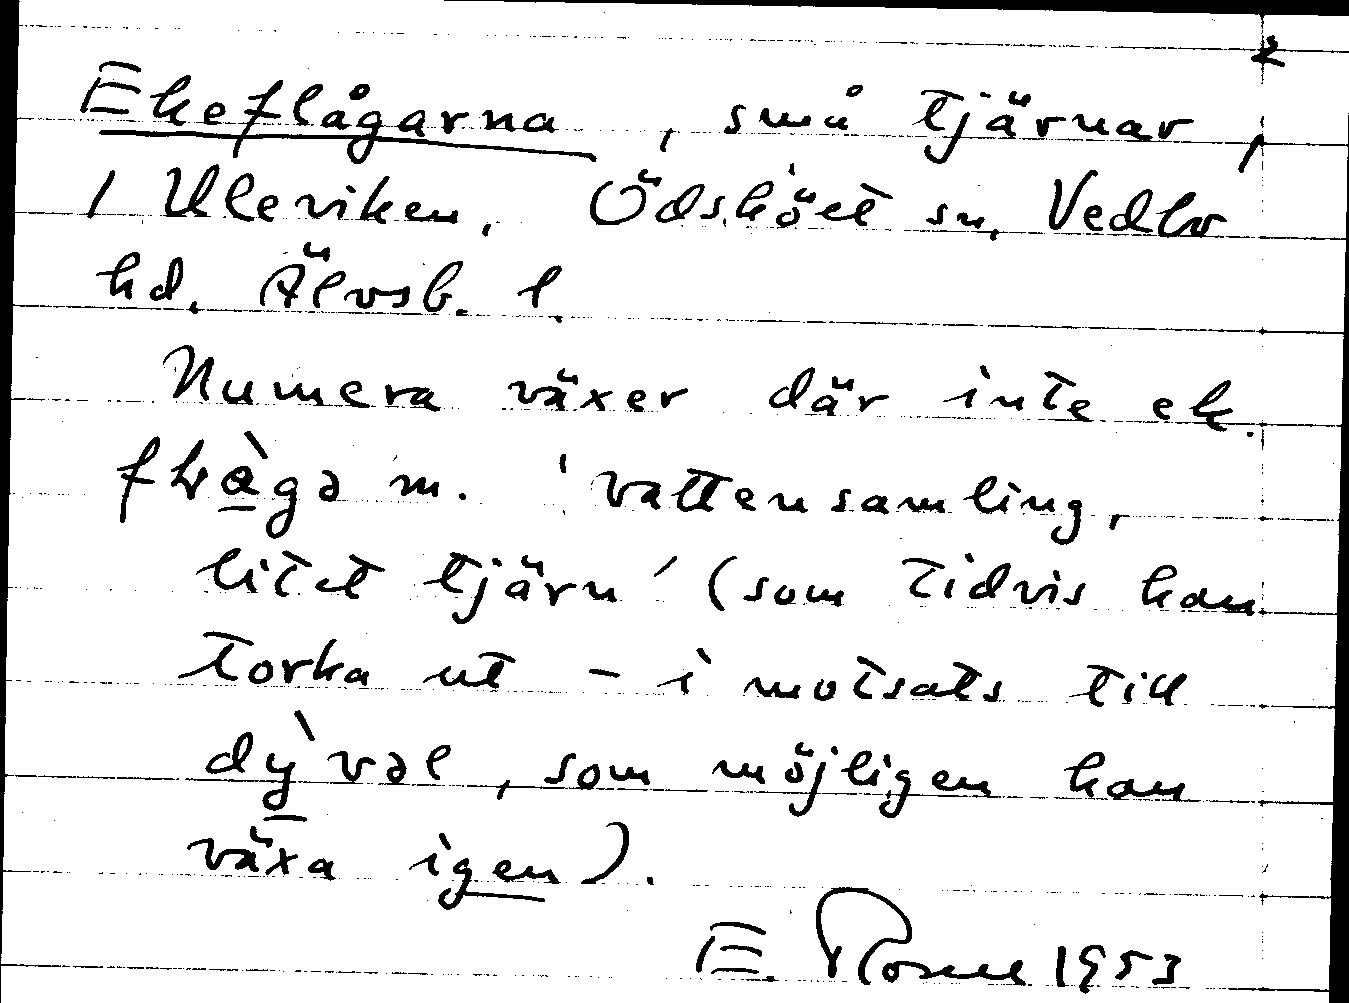 2
Ekeflågarna, små tjärnar,
i Uleviken, Ödsköet sn, Vedbo
hd. Älvsb. l.
Numera växer där inte ek.
f m. 'vattensamling,
litet tjärn' (som tidvis kan
torka ut – i motsats till
dỳvəl, som möjligen kan
växa igen).
E. 1953